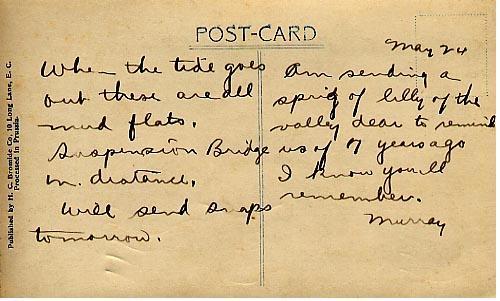 POST-CARD
May 24
When the tide goes
out these are all
mud flats.
Suspension Bridge
in distance.
Will send snaps
tomorrow.
Am sending a
sprig of lilly of the
valley dear to remind
us of 7 years ago
I know you'll
remember.
Murray
Published by H. C. Bromide Co, 10 Long Lane, E. C.
Processed in Prussia.